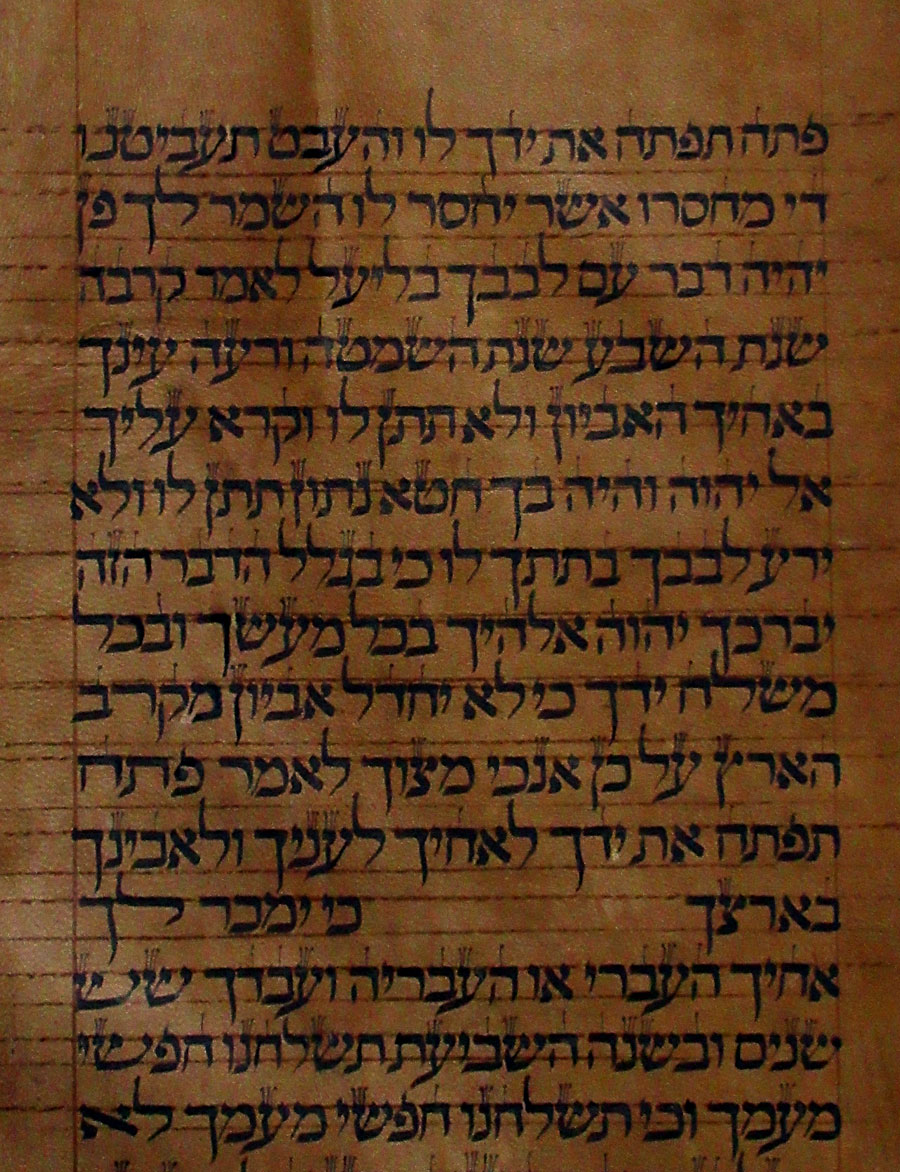 פתח תפתח את ידך לו והעבט תעביטנו
די מחסרו אשר יחסר לו השמר לך פן
יהיה דבר עם לבבך בליעל לאמר קרבה
שנת השבע שנת השמטה ורעה עינך
באחיך האביון ולא תתן לו וקרא עליך
אל יהוה והיה בך חטא נתון תתן לו ולא
ירע לבבך בתתך לו כי בגלל הדבר הזה
יברכך יהוה אלהיך בכל מעשך ובכל
משלח ידך כי לא יחדל אביון מקרב
הארץ על כן אנכי מצוך לאמר פתח
תפתח את ידך לאחיך לעניך ולאבינך
בארצך כי ימכר לך
אחיך העברי או העבריה ועבדך שש
שנים ובשנה השביעת תשלחנו חפשי
מעמך וכי תשלחנו חפשי מעמך לא